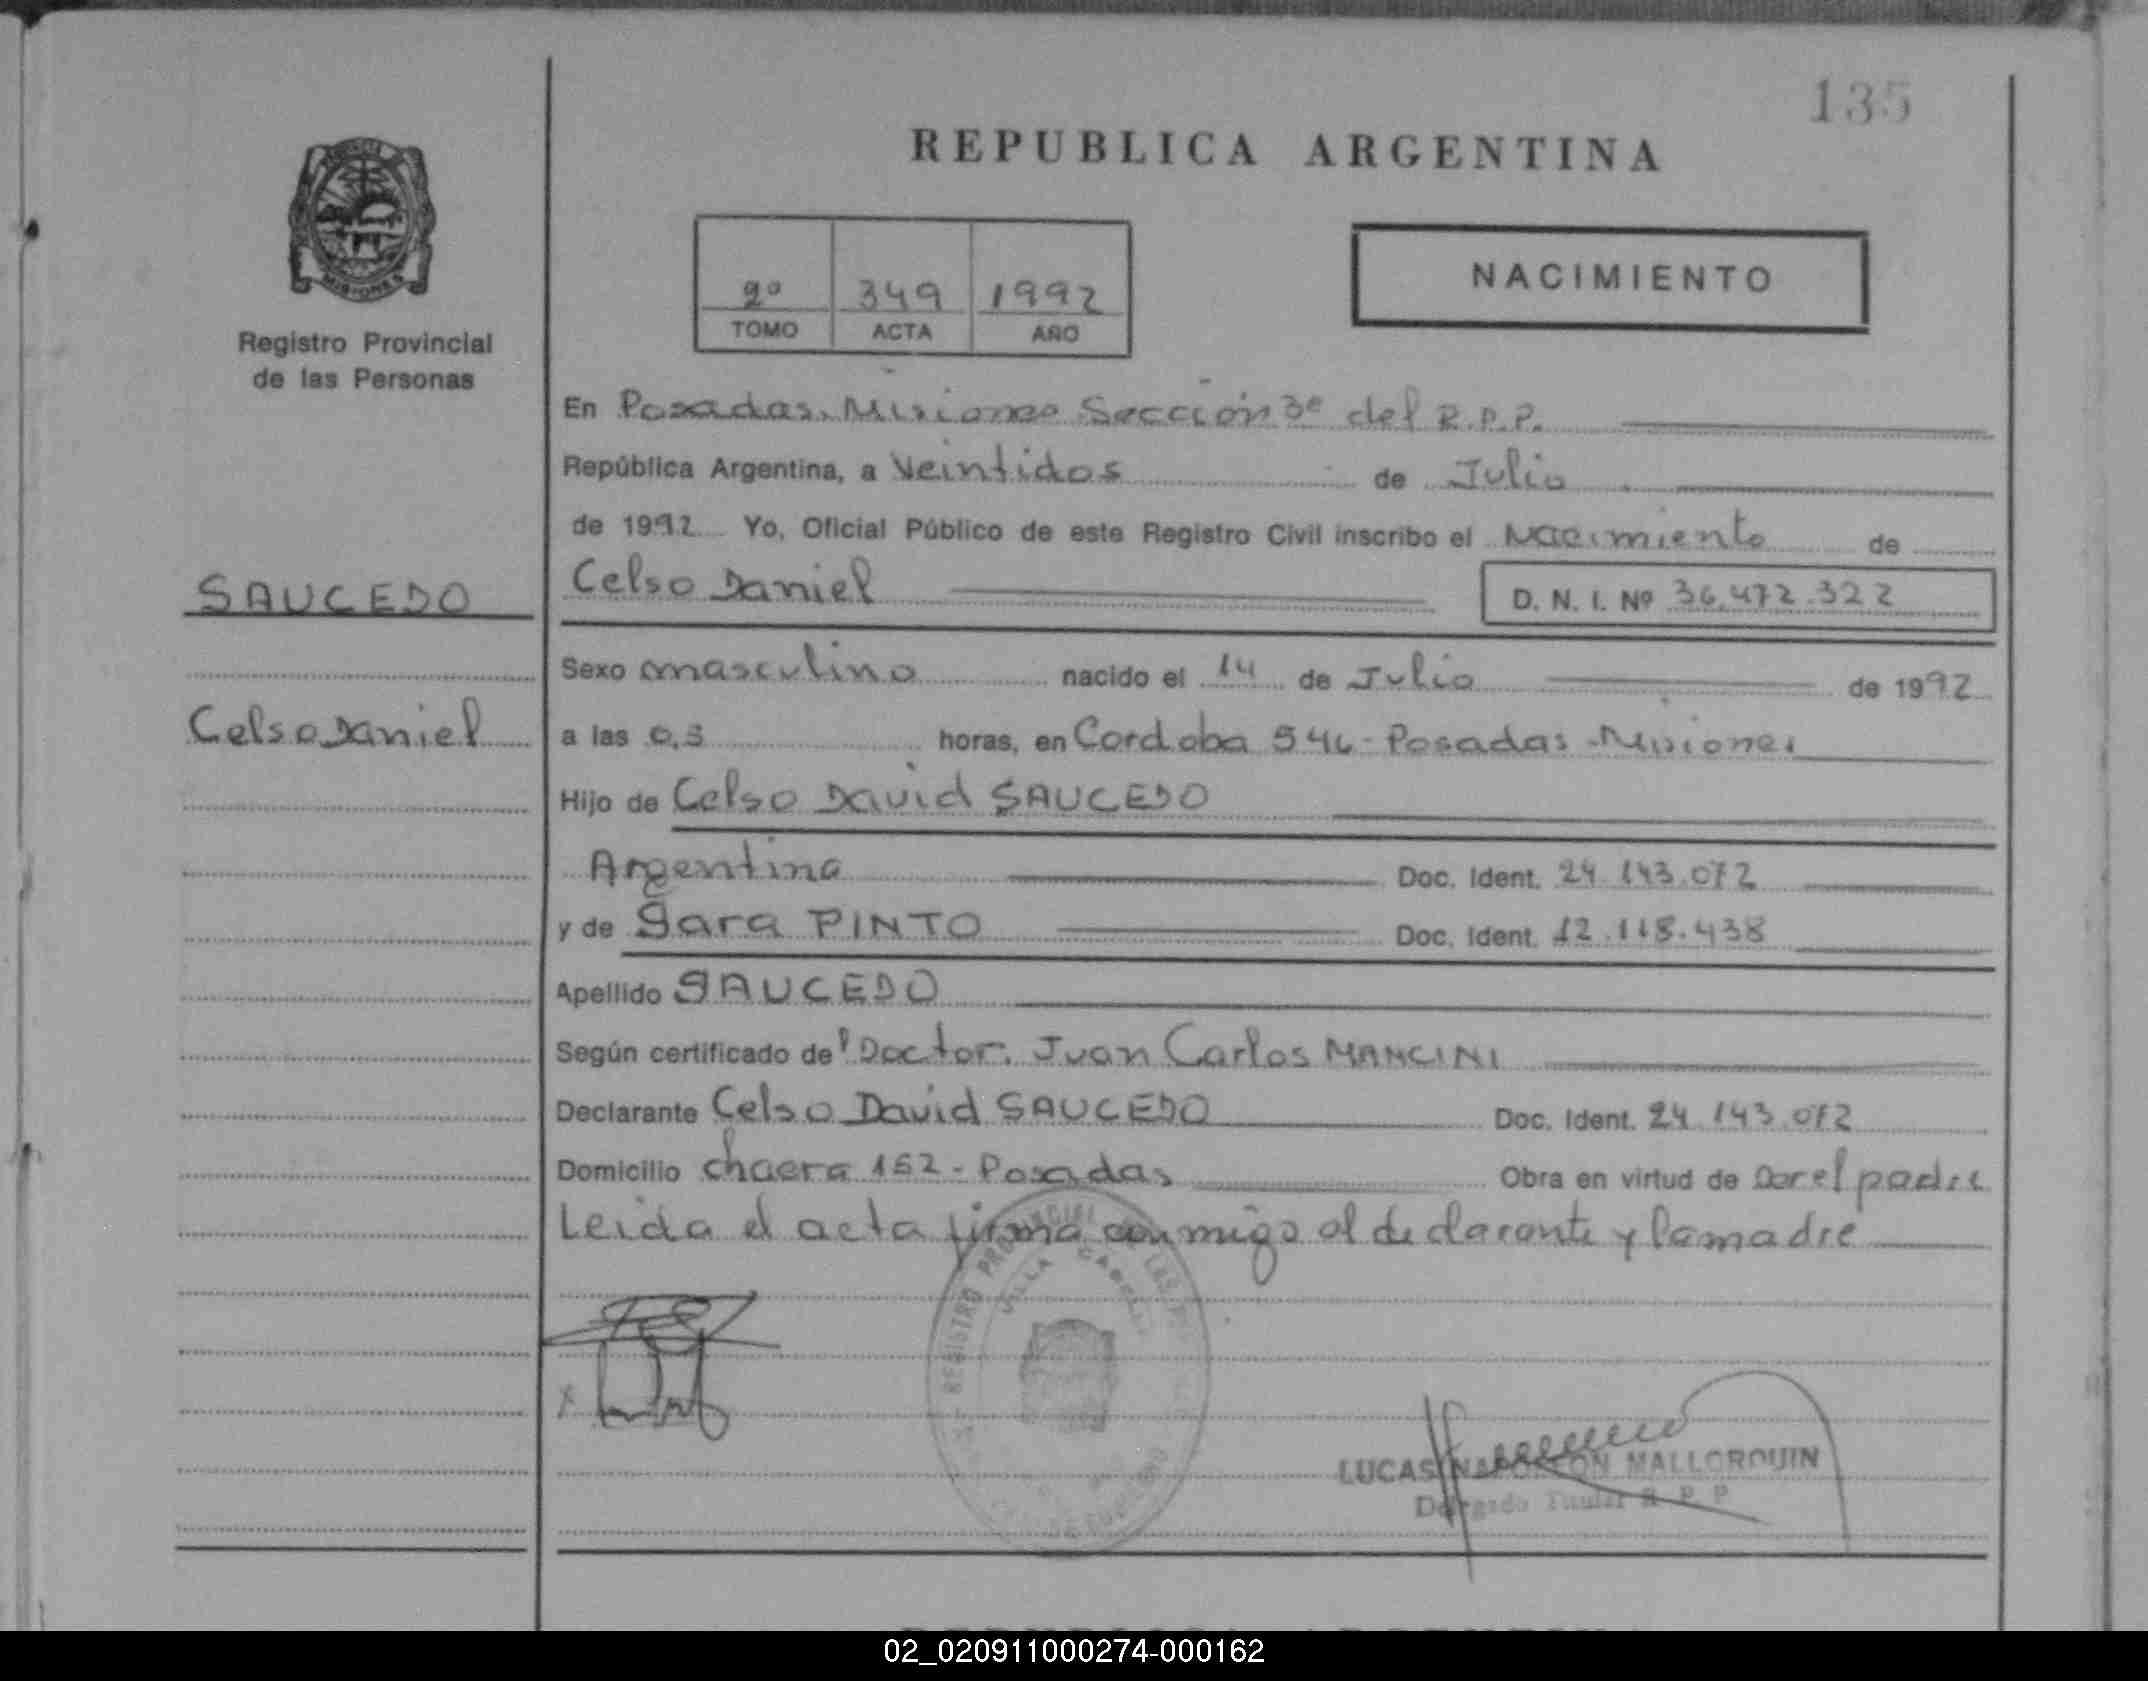 135
REPUBLICA ARGENTINA
MISIONES
Registro Provincial
de las Personas
2º 349 1992
TOMO ACTA AÑO
NACIMIENTO
En Posadas, Misiones Sección 3º del R.P.P.
República Argentina, a Veintidos de Julio
de 1992 Yo, Oficial Público de este Registro Civil inscribo el Nacimiento de
SAUCEDO
Celso Daniel
D. N. I. Nº 36.472.322
Sexo masculino nacido el 14 de Julio de 1992
Celso Daniel
a las 0,3 horas, en Cordoba 546 - Posadas - Misiones
Hijo de Celso David SAUCEDO
Argentina Doc. Ident. 24.143.072
y de Sara PINTO Doc. Ident. 12.118.438
Apellido SAUCEDO
Según certificado del Doctor. Juan Carlos MANCINI
Declarante Celso David SAUCEDO Doc. Ident. 24.143.072
Domicilio chacra 152 - Posadas Obra en virtud de ser el padre
Leida el acta firma conmigo el declarante y la madre
REGISTRO PROVINCIAL DE LAS
VILLA CABELLO
LUCAS NAPOLEON MALLORQUIN
Delegado Titular R. P. P.
02_020911000274-000162